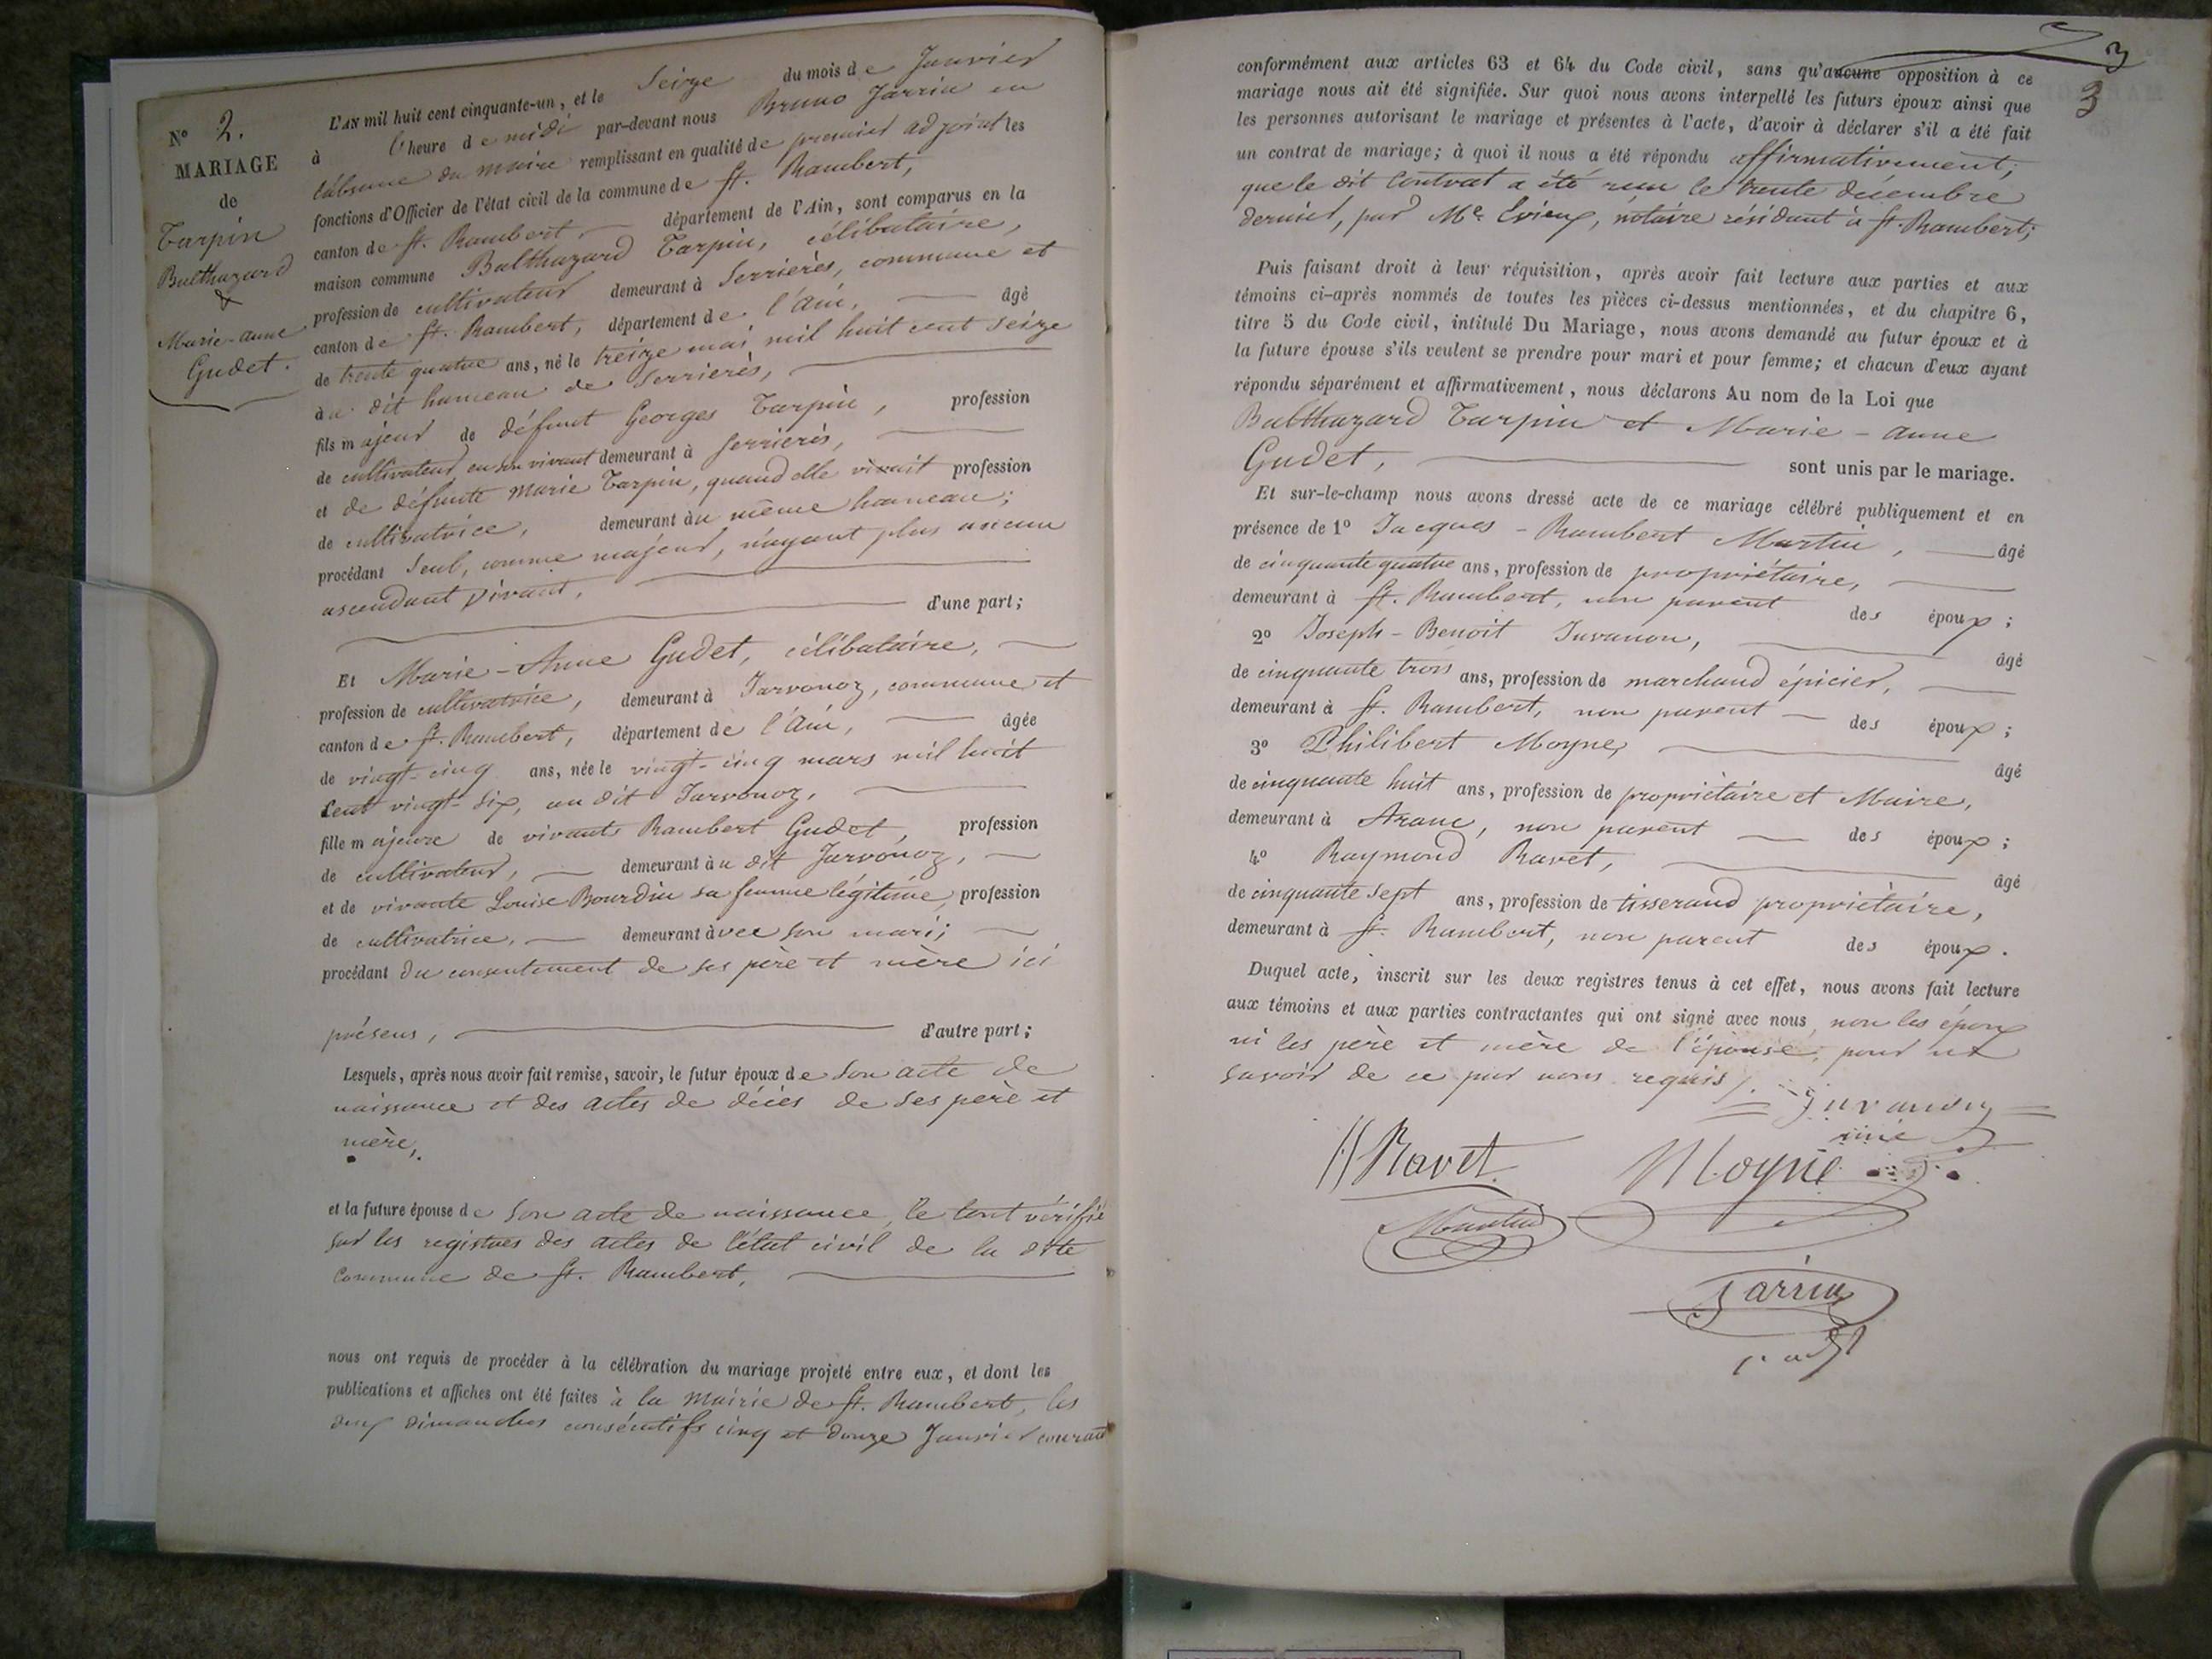 N° 2.
MARIAGE
de
Tarpin
Balthazard
&
Marie-anne
Gudet.
L'AN mil huit cent cinquante-un, et le Seize du mois de Janvier
à l'heure de midi par-devant nous Bruno Jarrin en
l'absence du maire remplissant en qualité de premier adjoint les
fonctions d'Officier de l'état civil de la commune de St. Rambert,
canton de St. Rambert département de l'Ain, sont comparus en la
maison commune Balthazard Tarpin, célibataire,
profession de cultivateur demeurant à Serrières, commune et
canton de St. Rambert, département de l'Ain, âgé
de trente quatre ans, né le treize mai mil huit cent seize
au dit hameau de Serrières,
fils majeur de défunt Georges Tarpin, profession
de cultivateur en son vivant demeurant à Serrières,
et de défunte Marie Tarpin, quand elle vivait profession
de cultivatrice, demeurant au même hameau;
procédant seul, comme majeur, n'ayant plus aucun
ascendant vivant,
d'une part;
Et Marie-Anne Gudet, célibataire,
profession de cultivatrice, demeurant à Jarvonoz, commune et
canton de St. Rambert, département de l'Ain, âgée
de vingt-cinq ans, née le vingt-cinq mars mil huit
cent vingt-six, au dit Jarvonoz,
fille majeure de vivants Rambert Gudet, profession
de cultivateur, demeurant au dit Jarvonoz,
et de vivante Louise Bourdin sa femme légitime, profession
de cultivatrice, demeurant avec son mari;
procédant du consentement de ses père et mère ici
présens, d'autre part;
Lesquels, après nous avoir fait remise, savoir, le futur époux de son acte de
naissance et des actes de décès de ses père et
mère,
et la future épouse de son acte de naissance, le tout vérifié
sur les registres des actes de l'état civil de la dite
commune de St. Rambert,
nous ont requis de procéder à la célébration du mariage projeté entre eux, et dont les
publications et affiches ont été faites à la Mairie de St. Rambert, les
deux dimanches consécutifs cinq et douze Janvier courant
3
3
conformément aux articles 63 et 64 du Code civil, sans qu'aucune opposition à ce
mariage nous ait été signifiée. Sur quoi nous avons interpellé les futurs époux ainsi que
les personnes autorisant le mariage et présentes à l'acte, d'avoir à déclarer s'il a été fait
un contrat de mariage; à quoi il nous a été répondu affirmativement;
que le dit contrat a été reçu le trente décembre
dernier, par Me. Evieux, notaire résidant à St. Rambert;
Puis faisant droit à leur réquisition, après avoir fait lecture aux parties et aux
témoins ci-après nommés de toutes les pièces ci-dessus mentionnées, et du chapitre 6,
titre 5 du Code civil, intitulé Du Mariage, nous avons demandé au futur époux et à
la future épouse s'ils veulent se prendre pour mari et pour femme; et chacun d'eux ayant
répondu séparément et affirmativement, nous déclarons Au nom de la Loi que
Balthazard Tarpin et Marie-anne
Gudet, sont unis par le mariage.
Et sur-le-champ nous avons dressé acte de ce mariage célébré publiquement et en
présence de 1° Jacques-Rambert Martin, âgé
de cinquante quatre ans, profession de propriétaire,
demeurant à St. Rambert, non parent des époux;
2° Joseph-Benoit Juvanon, âgé
de cinquante trois ans, profession de marchand épicier,
demeurant à St. Rambert, non parent des époux;
3° Philibert Moyne, âgé
de cinquante huit ans, profession de propriétaire et Maire,
demeurant à Aranc, non parent des époux;
4° Raymond Ravet, âgé
de cinquante sept ans, profession de tisserand propriétaire,
demeurant à St. Rambert, non parent des époux.
Duquel acte, inscrit sur les deux registres tenus à cet effet, nous avons fait lecture
aux témoins et aux parties contractantes qui ont signé avec nous, non les époux
ni les père et mère de l'épouse, pour ne
savoir de ce par nous requis.
Juvanon
ainé
Ravet
Moyne
Martin
Jarrin